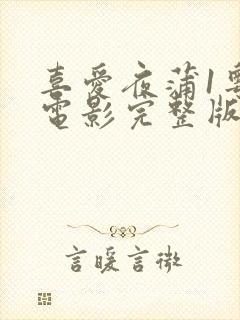 喜愛夜蒲1
電影完整版
言暖言微